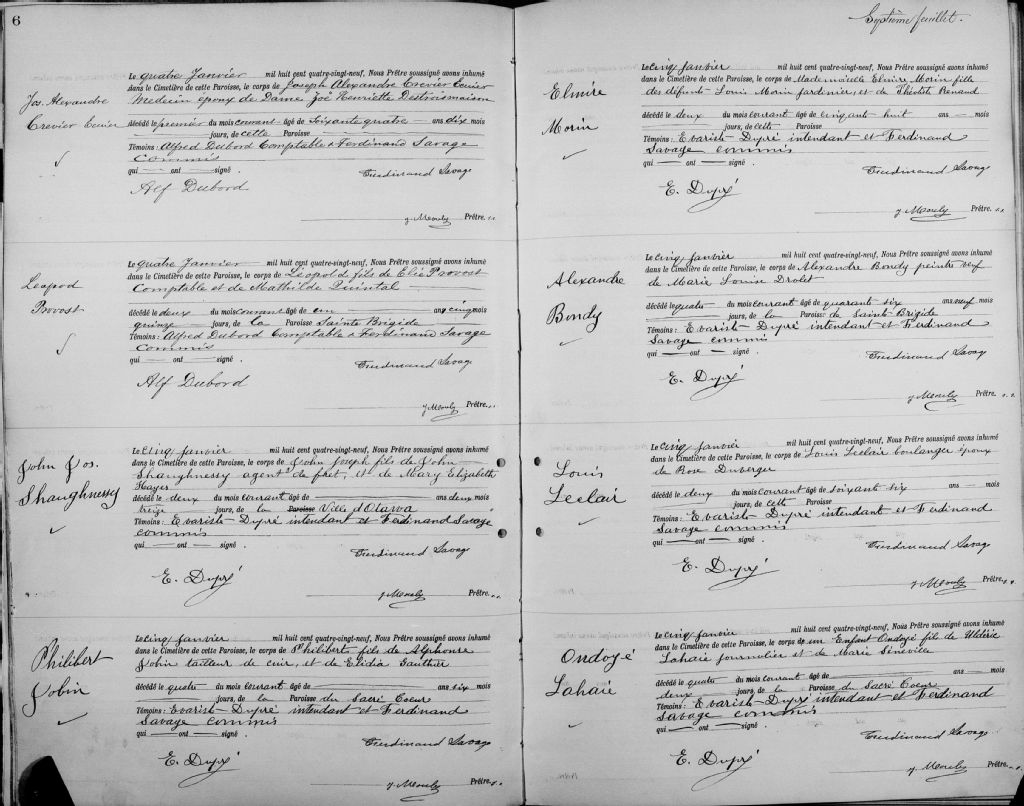 6
Jos. Alexandre
Crevier
Le quatre Janvier mil huit cent quatre-vingt-neuf, Nous Prêtre soussigné avons inhumé
dans le Cimetière de cette Paroisse, le corps de Joseph Alexandre Crevier
Medecin epoux de Dame Zoé Henriette
décédé le premier du mois courant âgé de Soixante quatre — ans six mois
— jours, de cette Paroisse —
Témoins: Alfred Dubord Comptable & Ferdinand Savage
Commis
qui — ont — signé.
Ferdinand Savage
Alf Dubord
Prêtre.
Leapod
Provost
Le quatre Janvier — mil huit cent quatre-vingt-neuf, Nous Prêtre soussigné avons inhumé
dans le Cimetière de cette Paroisse, le corps de Léopold fils de Elie Provost
Comptable et de Mathilde Quintal —
décédé le deux du mois courant âgé de un — ans cinq mois
quinze — jours, de la Paroisse Sainte Brigide
Témoins: Alfred Dubord Comptable & Ferdinand Savage
Commis
qui — ont — signé.
Ferdinand Savage
Alf Dubord
Prêtre.
John Jos.
Shaughnessy
Le Cinq Janvier mil huit cent quatre-vingt-neuf, Nous Prêtre soussigné avons inhumé
dans le Cimetière de cette Paroisse, le corps de John Joseph fils de John
Shaughnessy agent de fret, et de Mary Elizabeth
Hayes
décédé le deux du mois courant âgé de — ans deux mois
treize — jours, de la Paroisse Ville d'Otawa
Témoins: Evariste Dupré intendant et Ferdinand Savage
commis
qui — ont — signé.
Ferdinand Savage
E. Dupré
Prêtre.
Philibert
Jobin
Le Cinq Janvier mil huit cent quatre-vingt-neuf, Nous Prêtre soussigné avons inhumé
dans le Cimetière de cette Paroisse, le corps de Philibert fils de Alphonse
Jobin tailleur de cuir, et de Elidia Gauthier
décédé le quatre du mois courant âgé de — ans six mois
— jours, de la Paroisse du Sacré Coeur
Témoins: Evariste Dupré intendant et Ferdinand
Savage commis
qui — ont — signé.
Ferdinand Savage
E. Dupré
Prêtre.
Septième feuillet.
Elmire
Morin
Le Cinq Janvier mil huit cent quatre-vingt-neuf, Nous Prêtre soussigné avons inhumé
dans le Cimetière de cette Paroisse, le corps de Mademoiselle Elmire Morin fille
des défunts Louis Morin jardinier, et de Théotiste Renaud
décédé le deux du mois courant âgé de cinquante huit ans — mois
— jours, de cette Paroisse
Témoins: Evariste Dupré intendant et Ferdinand
Savage commis
qui — ont — signé.
Ferdinand Savage
E. Dupré
Prêtre.
Alexandre
Bondy
Le Cinq Janvier mil huit cent quatre-vingt-neuf, Nous Prêtre soussigné avons inhumé
dans le Cimetière de cette Paroisse, le corps de Alexandre Bondy peintre veuf
de Marie Louise Drolet
décédé le quatre du mois courant âgé de quarante six ans neuf mois
— jours, de la Paroisse de Sainte Brigide
Témoins: Evariste Dupré intendant et Ferdinand
Savage commis
qui — ont — signé.
Ferdinand Savage
E. Dupré
Prêtre.
Louis
Leclair
Le Cinq Janvier mil huit cent quatre-vingt-neuf, Nous Prêtre soussigné avons inhumé
dans le Cimetière de cette Paroisse, le corps de Louis Leclair boulanger époux
de Rose Duverger
décédé le deux du mois courant âgé de soixante six ans — mois
— jours, de cette Paroisse
Témoins: Evariste Dupré intendant et Ferdinand
Savage commis
qui — ont — signé.
Ferdinand Savage
E. Dupré
Prêtre.
Ondoyé
Lahaie
Le Cinq Janvier mil huit cent quatre-vingt-neuf, Nous Prêtre soussigné avons inhumé
dans le Cimetière de cette Paroisse, le corps de un Enfant Ondoyé fils de Uldéric
Lahaie journalier et de Marie Sénéville
décédé le quatre du mois courant âgé de — ans — mois
deux — jours, de la Paroisse du Sacré Coeur
Témoins: Evariste Dupré intendant et Ferdinand
Savage commis
qui — ont — signé.
Ferdinand Savage
E. Dupré
Prêtre.